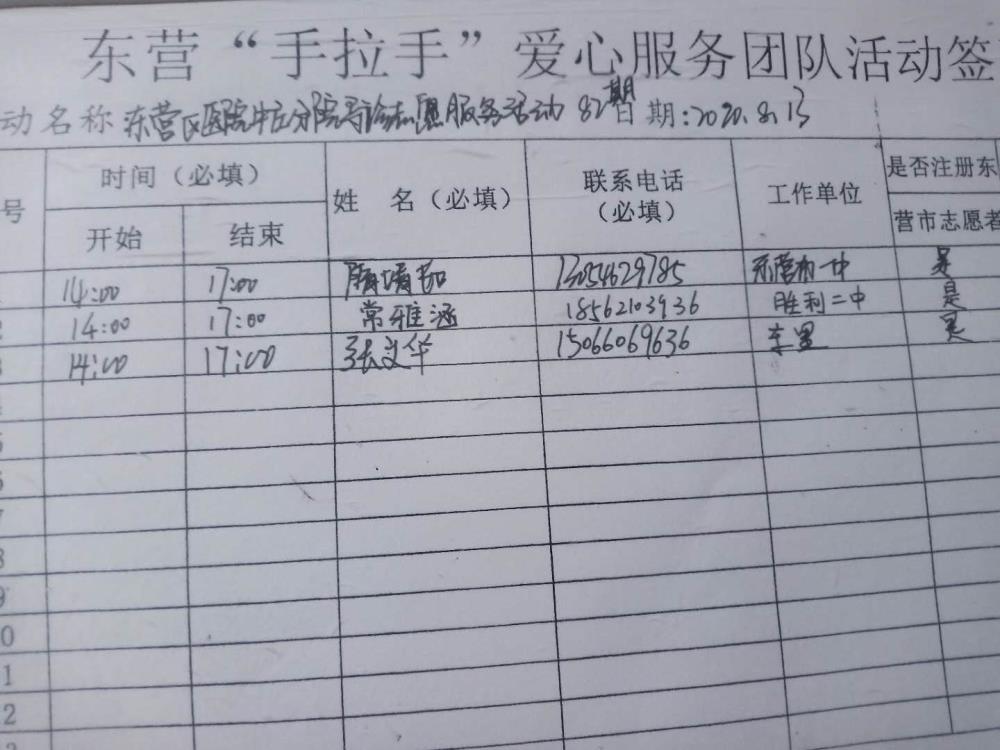 东营“手拉手”爱心服务团队活动签
动名称 东营区医院中医分院导诊志愿服务活动 82期 日期:2020.8.13
号 时间（必填） 姓 名（必填） 联系电话（必填） 工作单位 是否注册东营市志愿者
开始 结束
14:00 17:00 13054629785 东营市一中 是
2 14:00 17:00 常雅涵 18562103936 胜利二中 是
3 14:00 17:00 张文华 15066069636 是
5
7
8
9
0
1
2